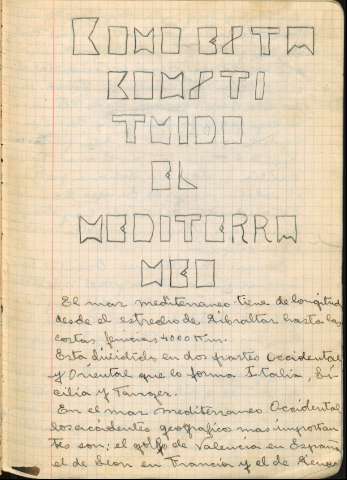 KOMO ESTA
KOMSTI
TUIDO
EL
MEDITERRA
MEO
El mar mediterraneo tiene de longitud
desde el estrecho de Gibraltar hasta las
costas fenicias 4000 Km.
Esta dividida en dos partes Occidental
y Oriental que lo forma Italia, Si-
cilia y Tunger.
En el mar mediterraneo Occidental
los accidentes geografico mas importan
tes son: el golfo de Valencia en España
el de Leon en Francia y el de Genova